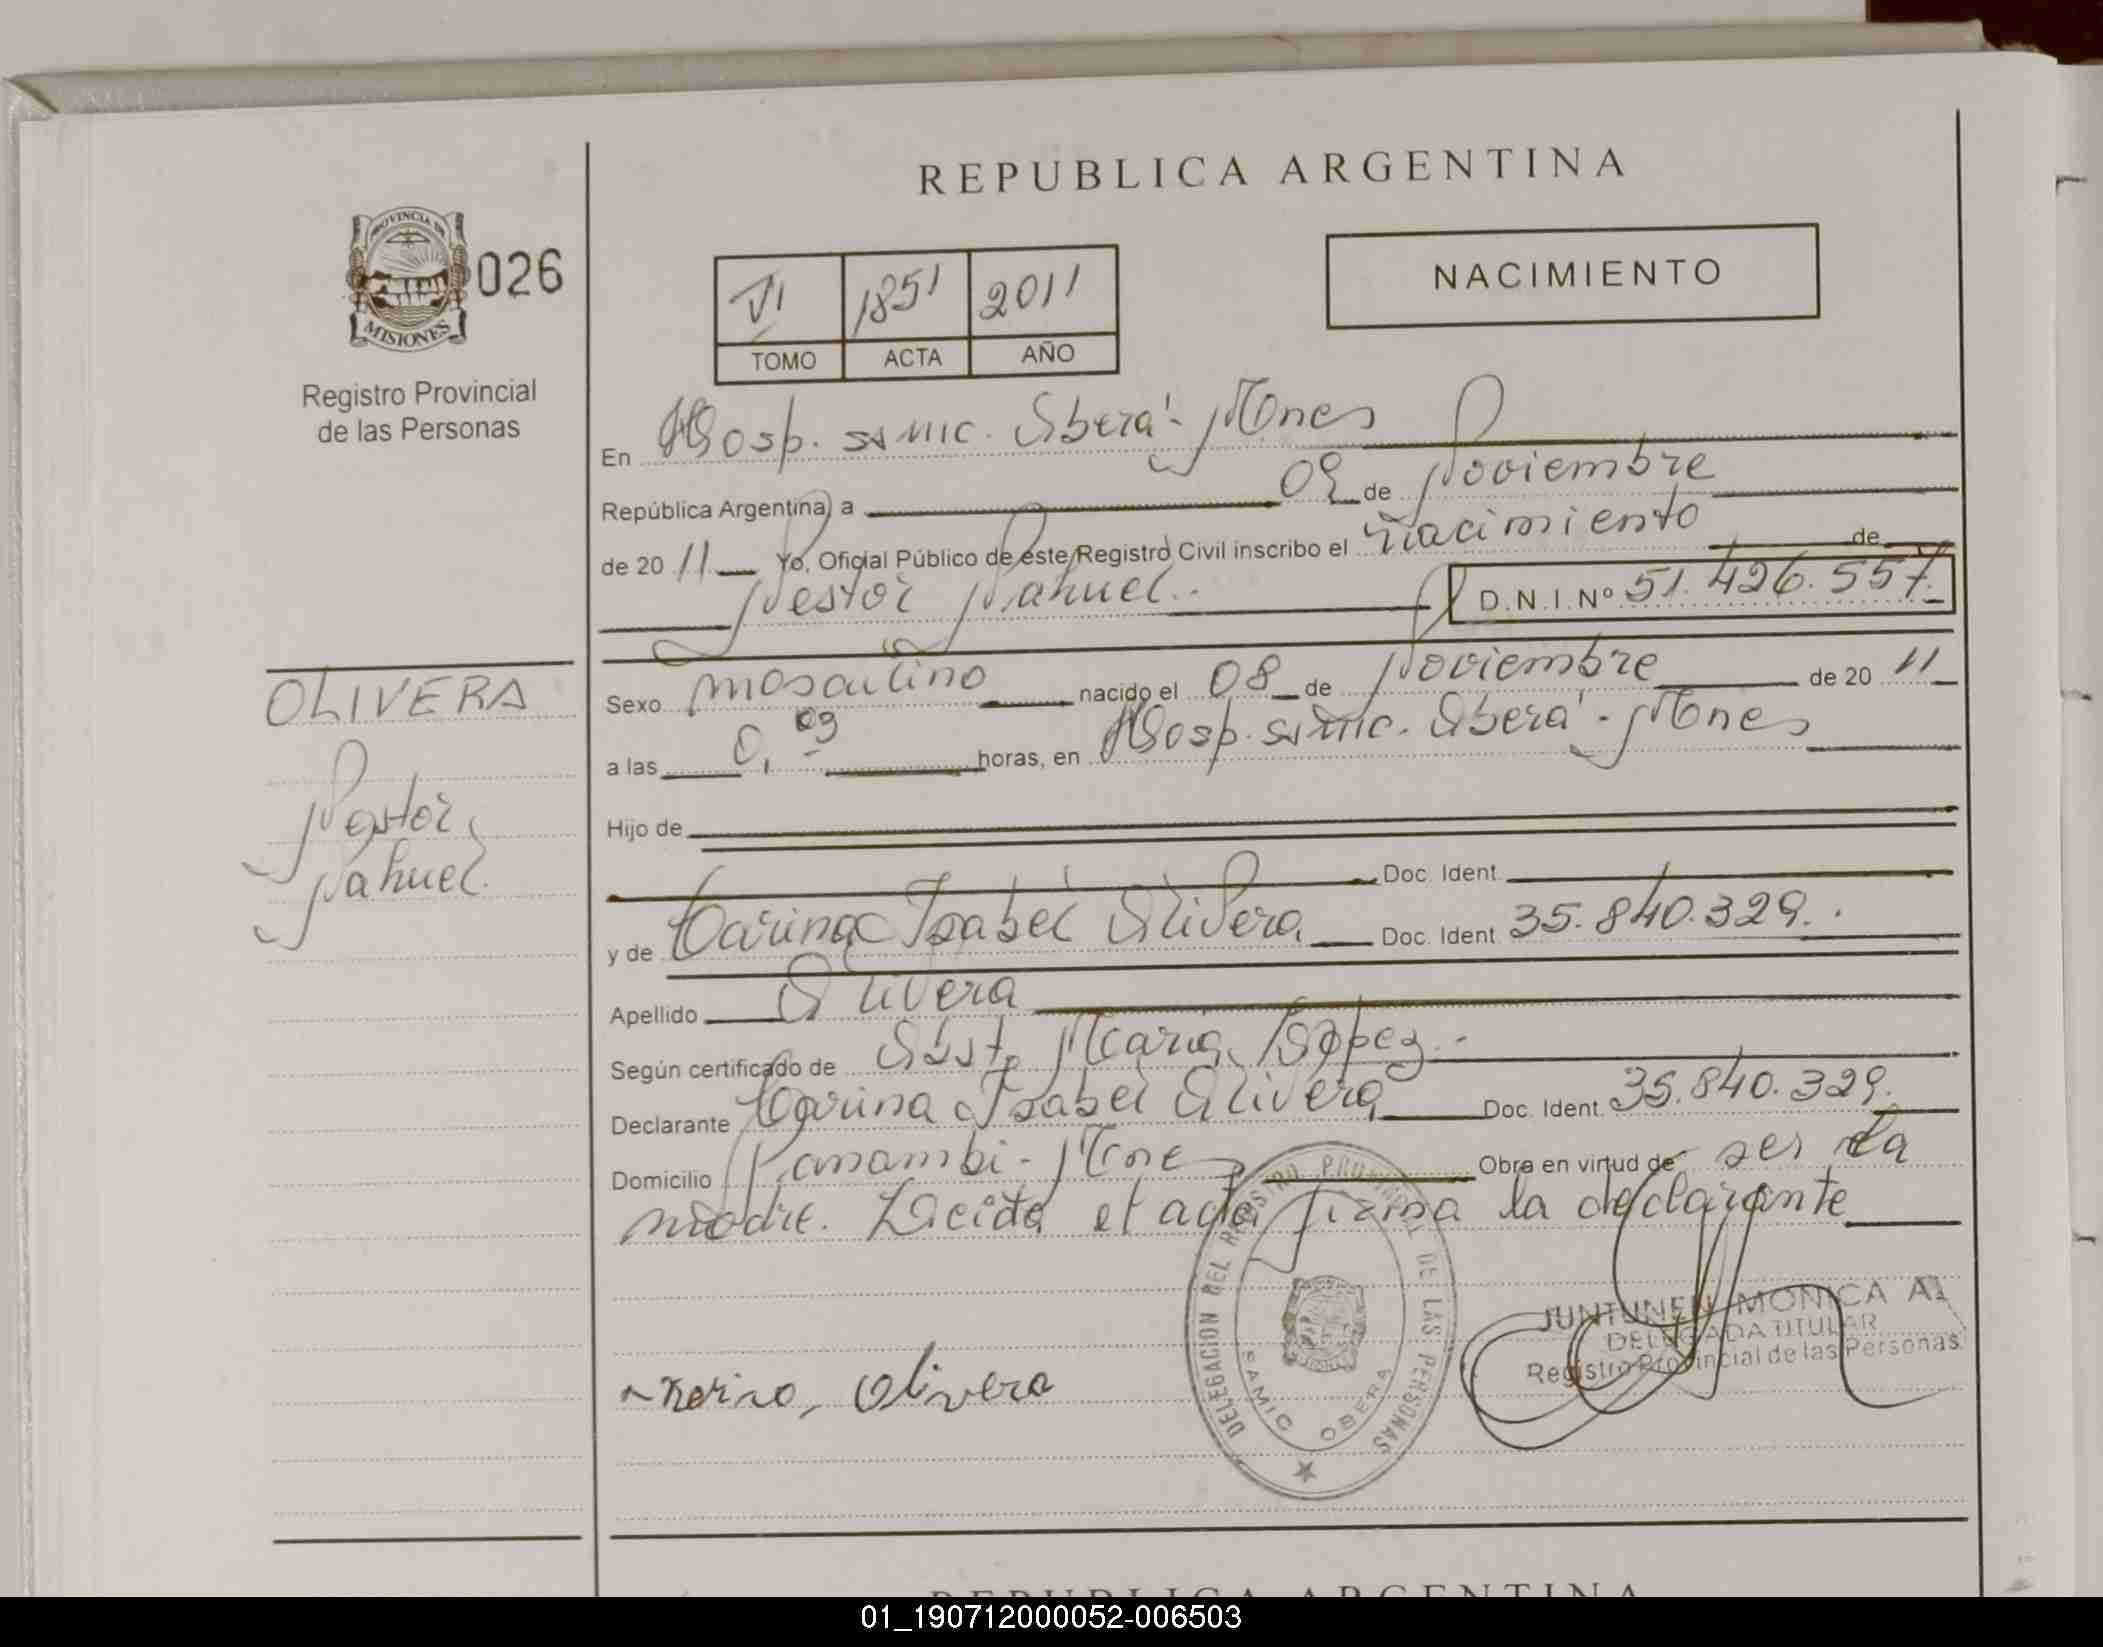 REPUBLICA ARGENTINA
PROVINCIA DE
MISIONES
026
Registro Provincial
de las Personas
VI 1851 2011
TOMO ACTA AÑO
NACIMIENTO
En Hosp. samic. Oberá - Mnes
República Argentina, a 09 de Noviembre
de 2011 Yo, Oficial Público de este Registro Civil inscribo el nacimiento de
Nestor Nahuel. D.N.I. Nº 51.426.557.
OLIVERA
Nestor
Nahuel.
Sexo masculino nacido el 08 de Noviembre de 2011
a las 0,09 horas, en Hosp. samic. Oberá - Mnes
Hijo de
Doc. Ident.
y de Carina Isabel Olivera Doc. Ident. 35.840.329.
Apellido Olivera
Según certificado de Obst. Maria Lopez.
Declarante Carina Isabel Olivera Doc. Ident. 35.840.329.
Domicilio Panambi - Mnes Obra en virtud de ser la
madre. Leída el acta firma la declarante
DELEGACION DEL REGISTRO PROVINCIAL DE LAS PERSONAS
SAMIC OBERA
JUNTUNEN MONICA A.
DELEGADA TITULAR
Registro Provincial de las Personas
Olivera
REPUBLICA ARGENTINA
01_190712000052-006503